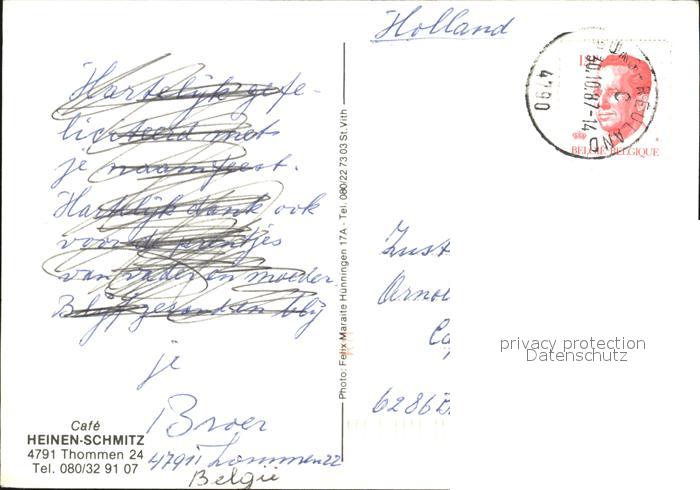 Holland
Hartelijk gefe-
liciteerd met
je naamfeest.
Hartelijk dank ook
voor de prentjes
van vader en moeder.
Blijf gezond en blij
je
Broer
4791 Tommen 22
België
Café
HEINEN-SCHMITZ
4791 Thommen 24
Tel. 080/32 91 07
Photo: Felix Maraite Hünningen 17A - Tel. 080/22 73 03 St. Vith
30.10.87-14
C
4790
BELGIË-BELGIQUE
Zust
Arno
6286 B
privacy protection
Datenschutz